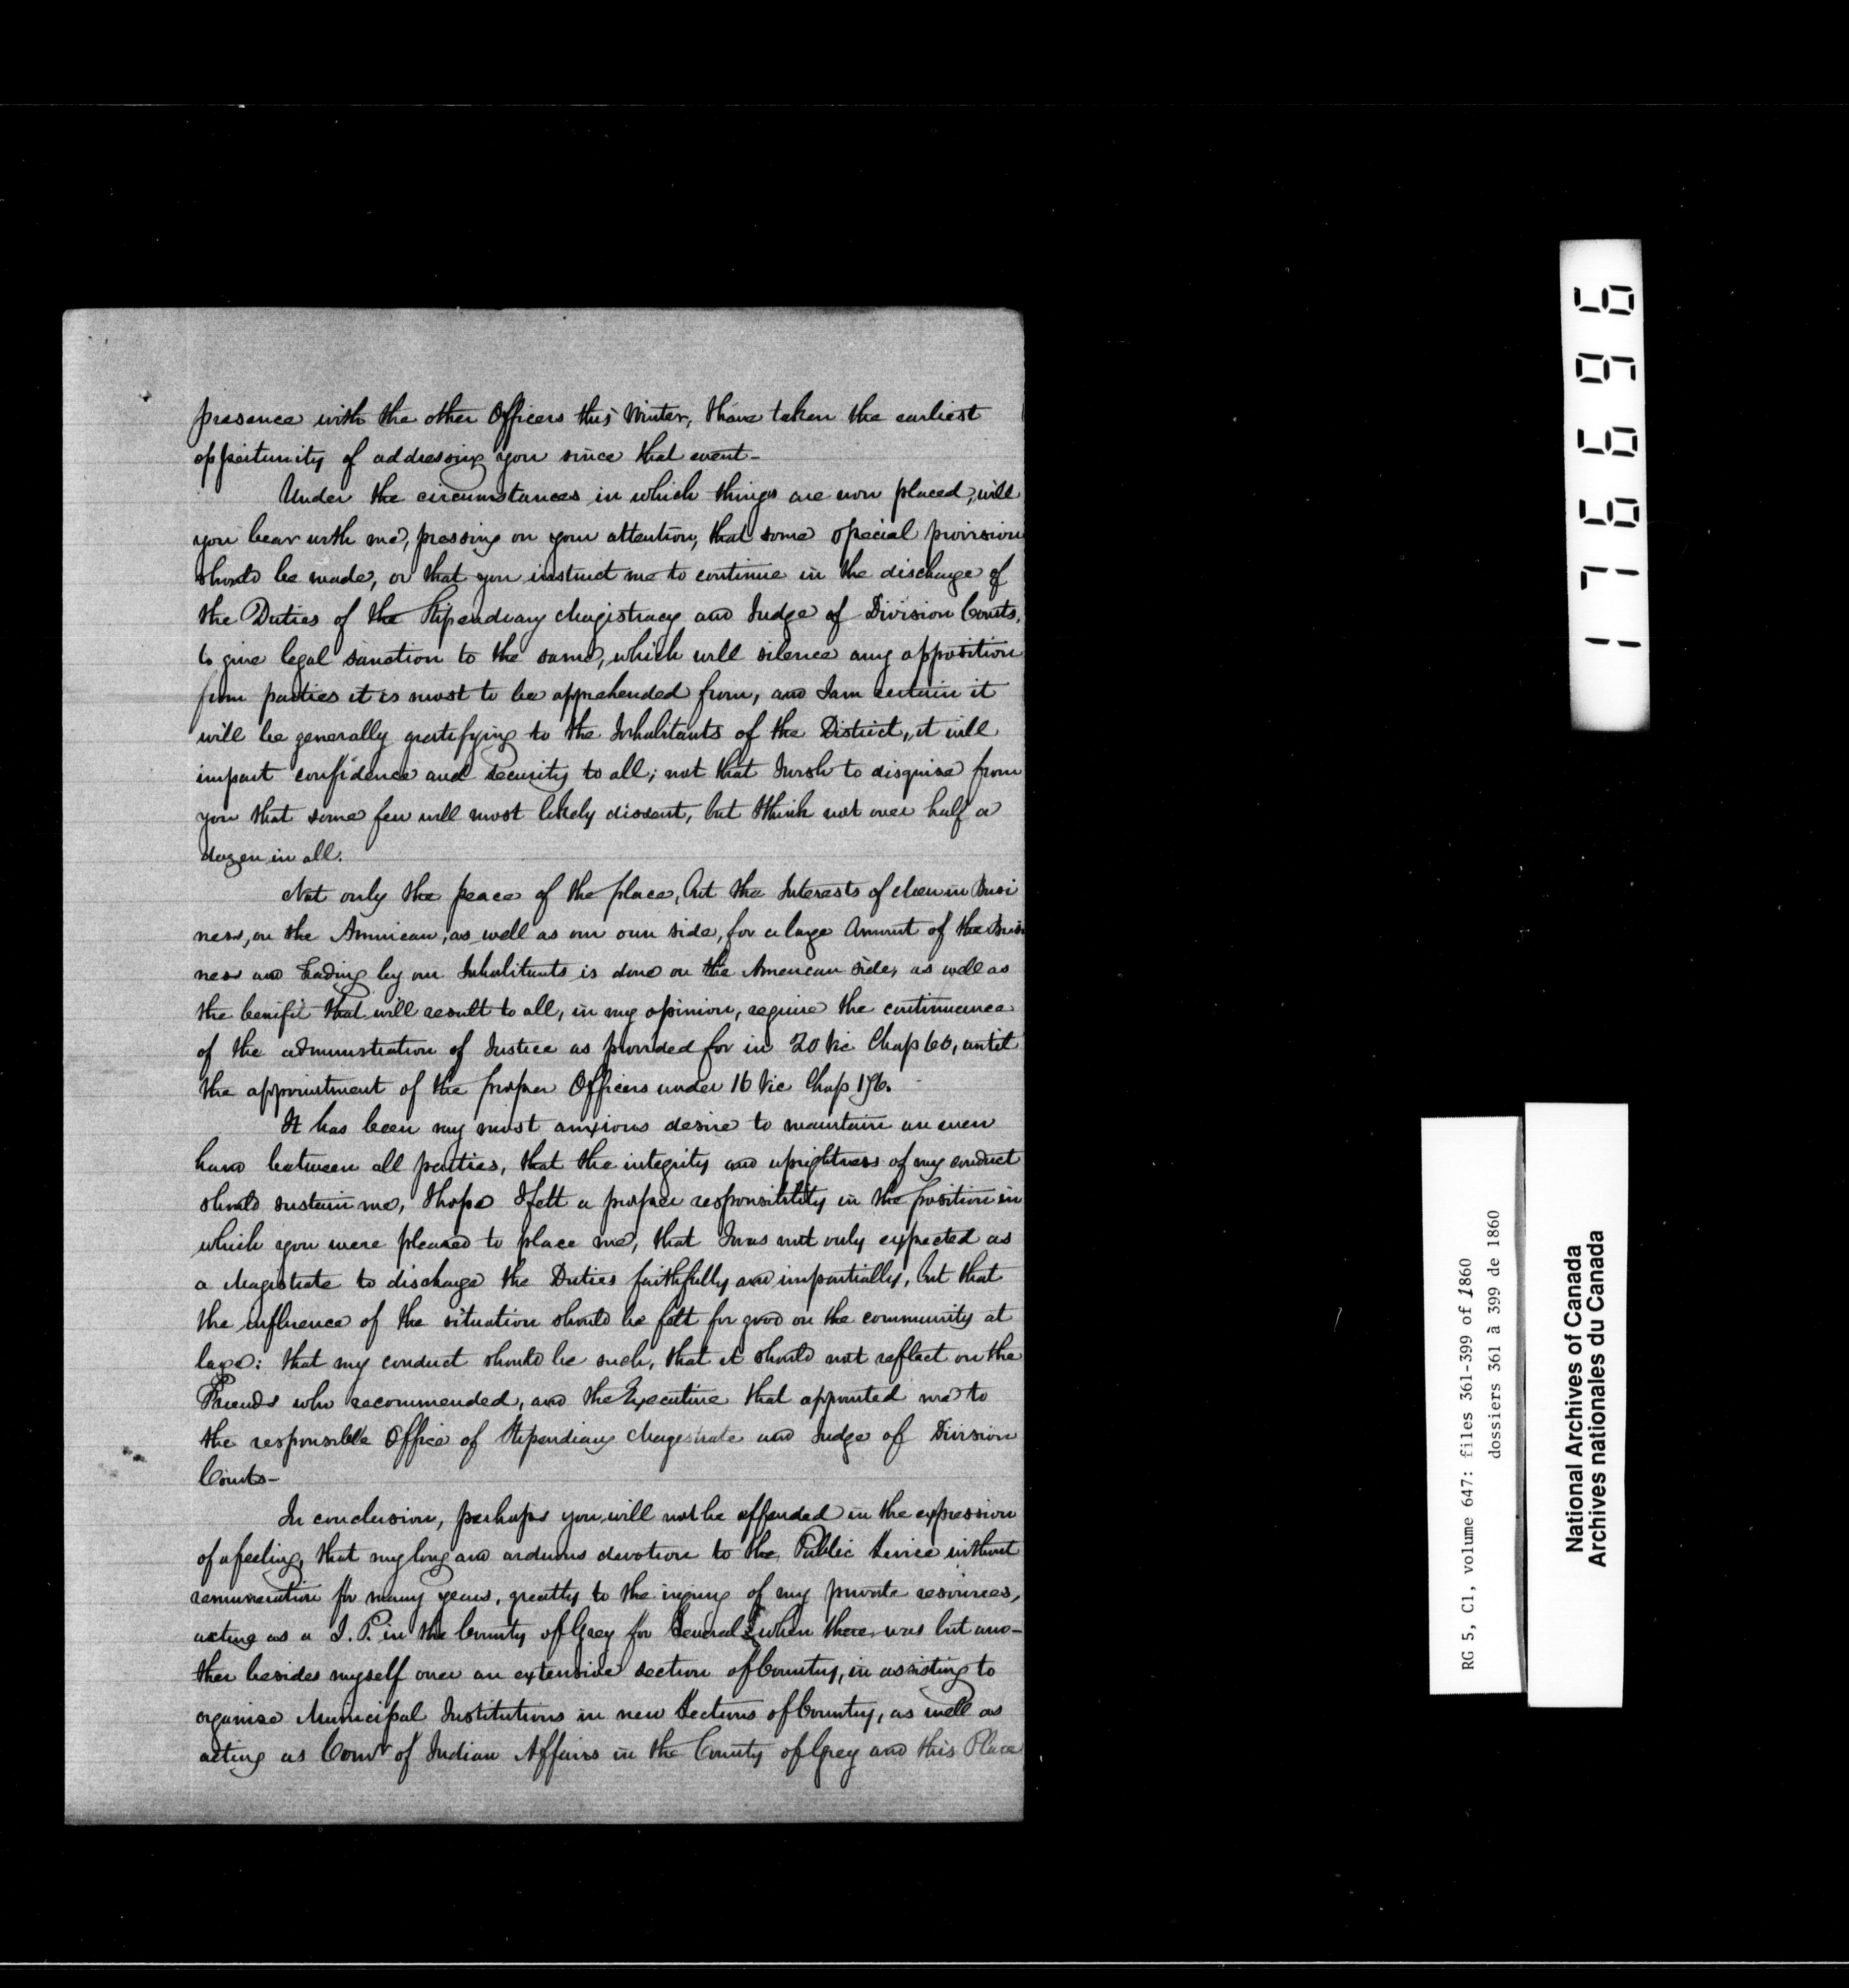 presence with the other Officers this Winter, I have taken the earliest
oppertunity of addressing you since that event-
Under the circumstances in which things are now placed, will
you bear with me, pressing on your attention, that some special provision
should be made, or that you instruct me to continue in the discharge of
the Duties of the Stipendiary Magistracy and Judge of Division Courts,
to give legal sanction to the same, which will silence any opposition
from parties it is most to be apprehended from, and I am certain it
will be generally gratifying to the Inhabitants of the District, it will
impart confidence and security to all; not that I wish to disguise from
you that some few will most likely dissent, but I think not over half a
dozen in all.
Not only the peace of the place, but the Interests of Men in Busi
ness, on the American, as well as our own side, for a large Amount of the Busi
ness and Trading by our Inhabitants is done on the American side, as well as
the benifit that will result to all, in my opinion, require the continuance
of the administration of Justice as provided for in 20 Vic Chap 60, until
the appointment of the proper Officers under 16 Vic Chap 176.
It has been my most anxious desire to maintain an even
hand between all parties, that the integrity and uprightness of my conduct
should sustain me, I hope I felt a proper responsibility in the position in
which you were pleased to place me, that I was not only expected as
a Magistrate to discharge the Duties faithfully and impartially, but that
the influence of the situation should be felt for good on the community at
large: that my conduct should be such, that it should not reflect on the
Friends who recommended, and the Executive that appointed me to
the responsible Office of Stipendiary Magistrate and Judge of Division
Courts-
In conclusion, perhaps you will not be offended in the expression
of a feeling, that my long and arduous devotion to the Public Service without
remuneration for many years, greatly to the injury of my private resources,
acting as a J. P. in the County of Grey for Several when there was but ano-
ther besides myself over an extensive section of Country, in assisting to
organise Municipal Institutions in new Sections of Country, as well as
acting as Comr of Indian Affairs in the County of Grey and this Place
1766696
RG 5, C1, volume 647: files 361-399 of 1860
dossiers 361 à 399 de 1860
National Archives of Canada
Archives nationales du Canada